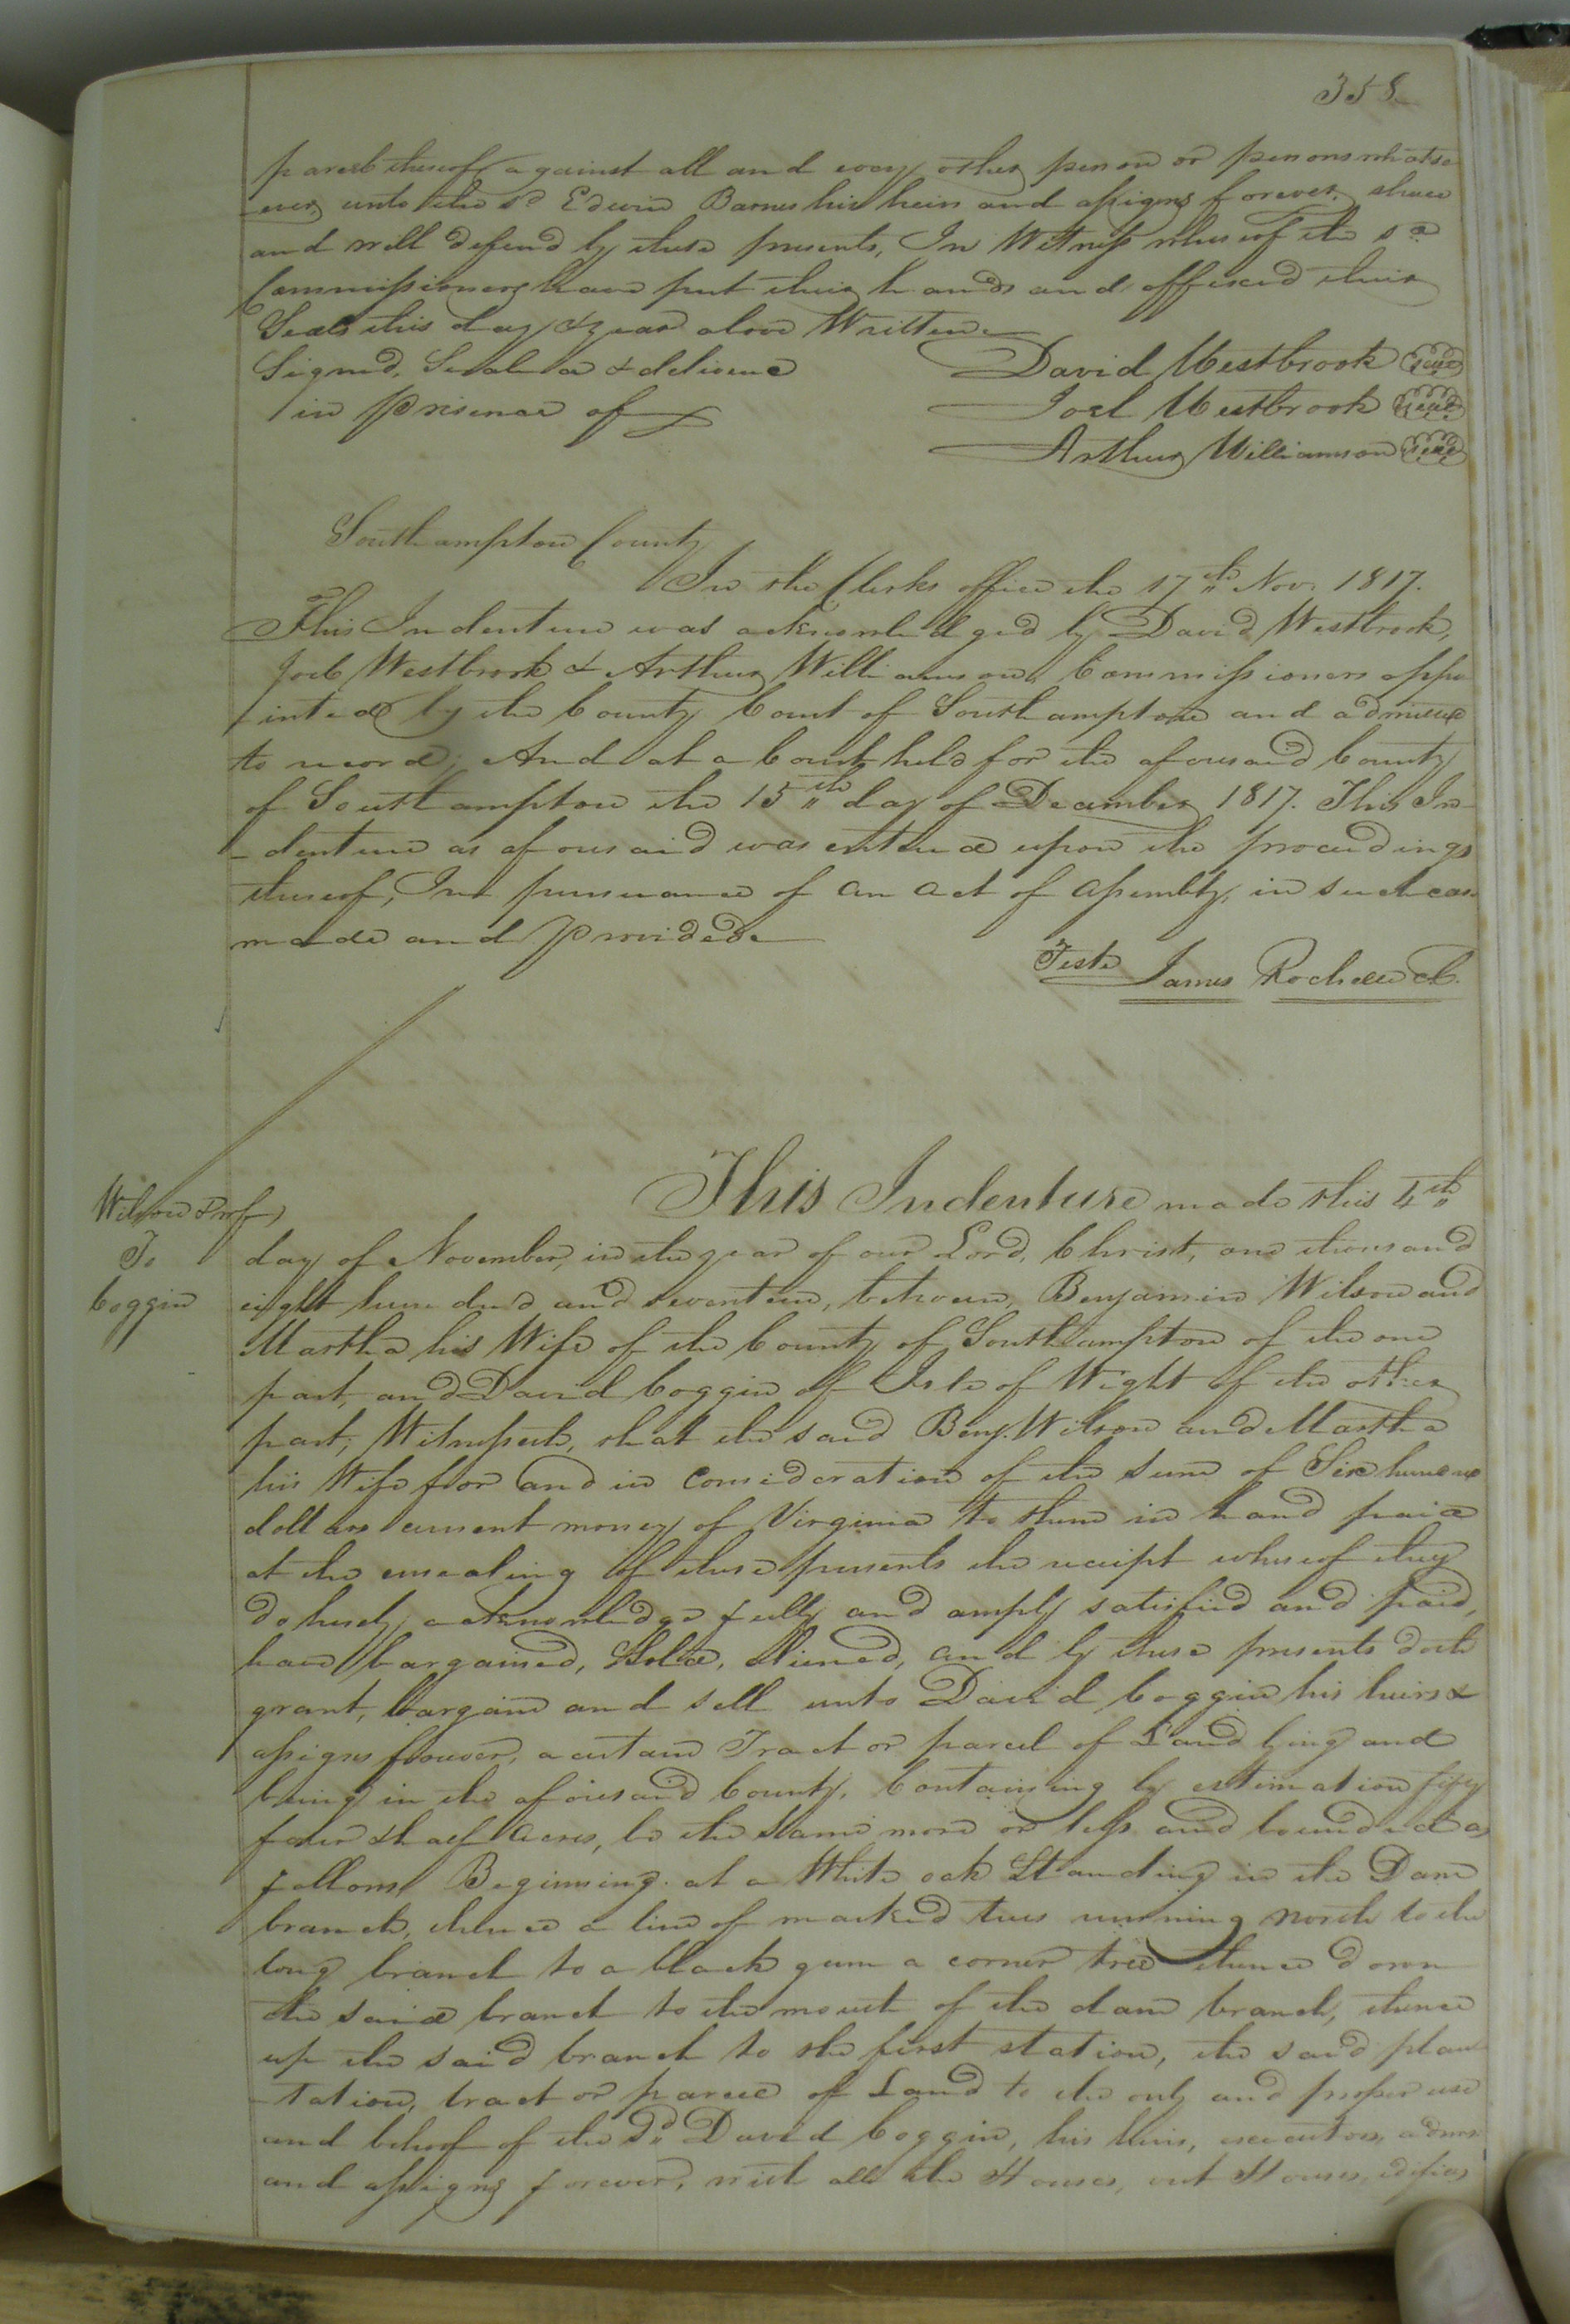 358
parcel thereof against all and every other person or persons whatso
-ever, unto the sd Edwin Barnes his heirs and assigns forever shall
and will defend by these presents, In Witness whereof the sd
Commissioners have put their hands and affixed their
Seals this day & year above Written
Signed, Sealed & delivered
in Presence of
David Westbrook Seal
Joel Westbrook Seal
Arthur Williamson Seal
Southampton County
In the Clerks office the 17th Nov. 1817.
This Indenture was acknowledged by David Westbrook,
Joel Westbrook & Arthur Williamson Commissioners appo
-inted by the County Court of Southampton and admitted
to record; And at a Court held for the aforesaid County
of Southampton the 15th day of December 1817. This In-
-denture as aforesaid was entered upon the proceedings
thereof, In pursuance of an act of Assembly, in such case
made and Provided
Teste James Rochelle C.
Wilson & wf
To
Coggin
This Indenture made this 4th
day of November, in the year of our Lord, Christ, one thousand
eight hundred and seventeen, between, Benjamin Wilson and
Martha his Wife of the County of Southampton of the one
part, and David Coggin of Isle of Wight of the other
part; Witnesseth, that the said Benj. Wilson and Martha
his Wife for and in Consideration of the sum of Six hundred
dollars current money of Virginia to them in hand paid
at the ensealing of these presents the receipt whereof they
do hereby acknowledge fully and amply satisfied and paid,
have bargained, Sold, Aliened, and by these presents doth
grant, bargain and sell unto David Coggin his heirs &
assigns forever, a certain Tract or parcel of Land lying and
being in the aforesaid County, Containing by estimation fifty
four & half Acres, be the same more or less and bounded as
follows Beginning at a White oak Standing in the Dam
branch, thence a line of marked trees running North to the
long branch to a black gum a corner tree thence down
the said branch to the mouth of the dam branch, thence
up the said branch to the first station, the said plan
-tation, tract or parcel of Land to the only and proper use
and behoof of the Sd David Coggin, his heirs, executors, admrs
and assigns forever, with all the Houses, out Houses, edifices